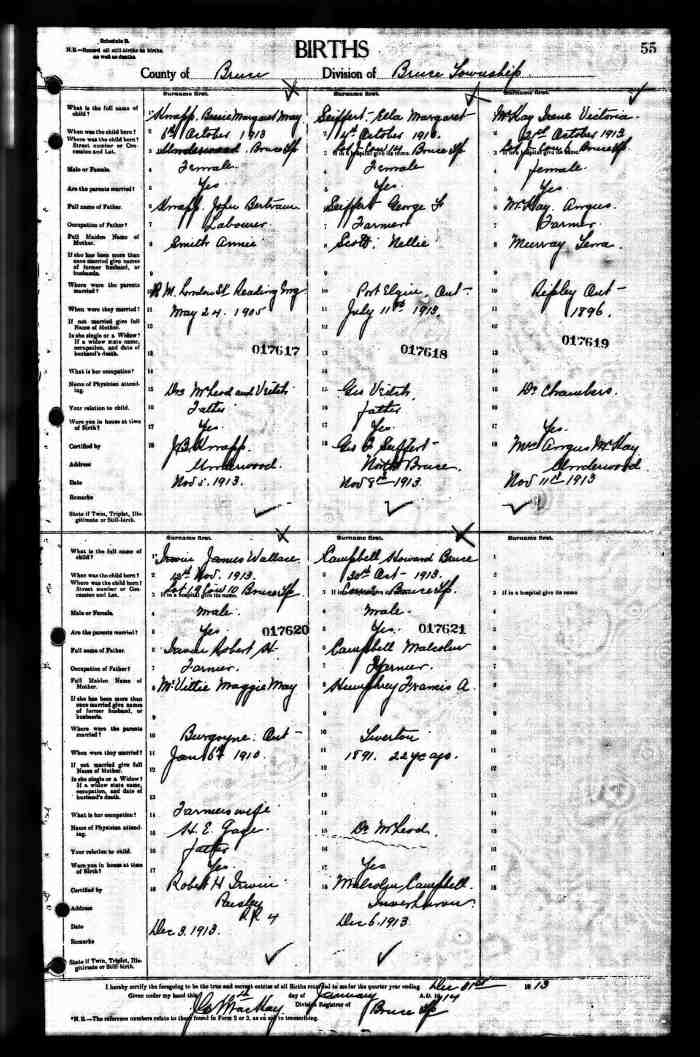 Schedule B.
N.B.—Record all still-births as births, as well as deaths.
BIRTHS
55
County of Bruce Division of Bruce Township
Surname first. Surname first. Surname first.
What is the full name of child?
Knapp Bessie Margaret May
Seiffert Ella Margaret
McKay Irene Victoria
When was the child born?
6th October 1913
October
21st October 1913
Where was the child born? Street number or Concession and Lot.
Underwood Bruce Tp
Bruce Tp
Bruce Tp
Male or Female.
Female
Female
female
Are the parents married?
Yes
Yes
Yes
Full name of Father.
Knapp John Bertram
Seiffert George F
McKay Angus
Occupation of Father?
Labourer
Farmer
Farmer
Full Maiden Name of Mother.
Smith Annie
Scott Nellie
Murray
If she has been more than once married give names of former husband, or husbands.
Where were the parents married?
London St Reading Eng
Port Elgin Ont
Ripley Ont
When were they married?
May 24 1905
July 11th 1913
1896
If not married give full Name of Mother.
Is she single or a Widow? If a widow state name, occupation, and date of husband's death.
017617 017618 017619
What is her occupation?
Name of Physician attending.
Drs McLeod and Veitch
Geo Veitch
Dr Chambers
Your relation to child.
Father
father
Were you in house at time of Birth?
Yes
Yes
Yes
Certified by
J B Knapp
Mrs Angus McKay
Address
Underwood
North Bruce
Underwood
Date
Nov 5 1913
Nov 8th 1913
Nov 11th 1913
Remarks
State if Twin, Triplet, Illegitimate or Still-birth.
Surname first. Surname first. Surname first.
What is the full name of child?
Irwin James Wallace
Campbell Howard Bruce
When was the child born?
Nov. 1913
30th Oct 1913
Where was the child born? Street number or Concession and Lot.
Con 10 Bruce Tp
Bruce Tp
If in a hospital give its name
Male or Female.
male
male
Are the parents married?
Yes 017620
Yes 017621
Full name of Father.
Irwin Robert H
Campbell Malcolm
Occupation of Father?
Farmer
Farmer
Full Maiden Name of Mother.
McVittie Maggie May
Humphrey Francis A
If she has been more than once married give names of former husband, or husbands.
Where were the parents married?
Burgoyne Ont
Tiverton
When were they married?
Jan 6th 1910
1891. 22 yrs ago.
If not married give full Name of Mother.
Is she single or a Widow? If a widow state name, occupation, and date of husband's death.
What is her occupation?
Farmers wife
Name of Physician attending.
H. E. Gage
Dr McLeod
Your relation to child.
father
Were you in house at time of Birth?
Yes
Yes
Certified by
Robert H Irwin
Malcolm Campbell
Address
Paisley
RR 4
Inverhuron
Date
Dec 3. 1913
Dec 6. 1913
Remarks
State if Twin, Triplet, Illegitimate or Still-birth.
I hereby certify the foregoing to be the true and correct entries of all Births received to me for the quarter year ending Dec 31st 1913
Given under my hand this day of January A.D. 1914
MacKay Division Registrar of Bruce Tp
*N.B.—The reference numbers relate to those found in Form 2 or 3, as on